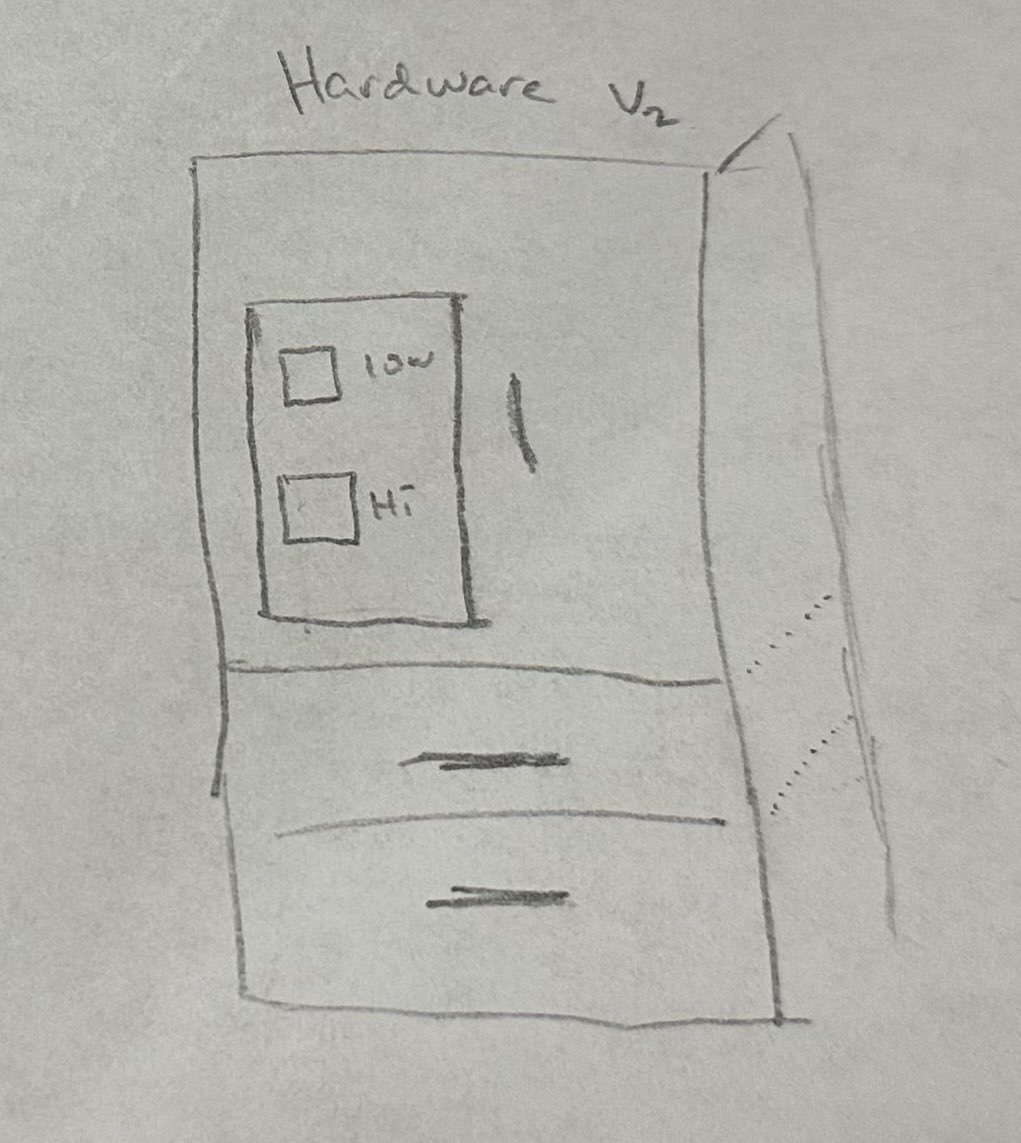 Hardware V2
low
Hi